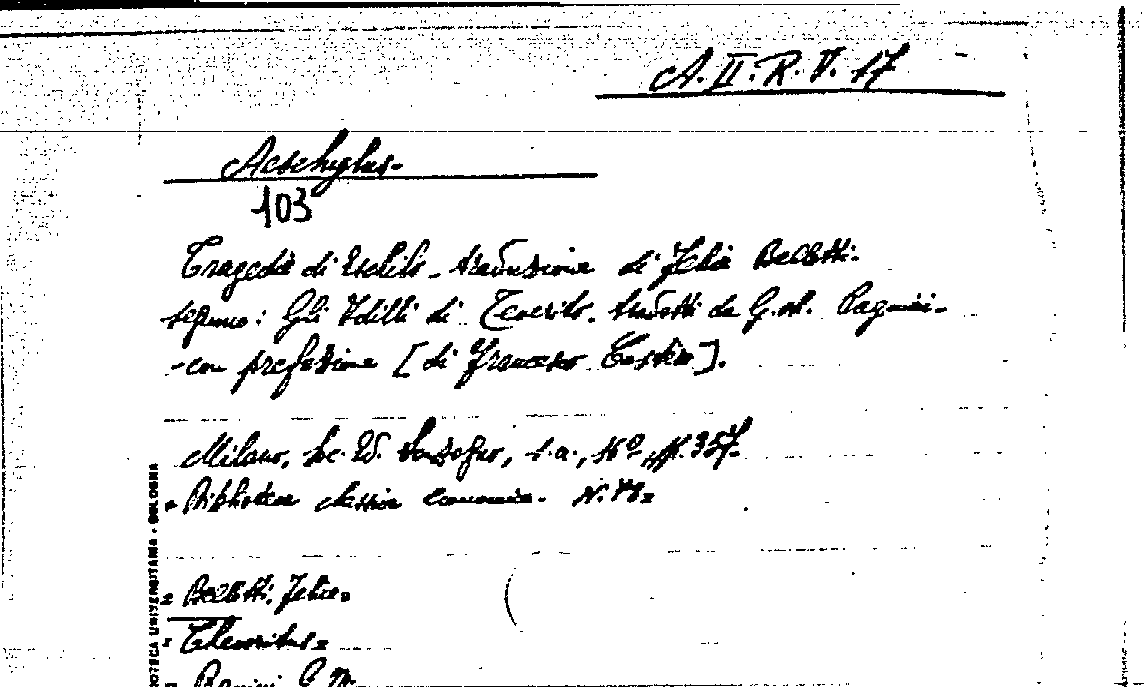 A. II. R. V. 17
Aeschylus-
103
Tragedie di Eschilo - traduzione di Felice Bellotti.
seguono: Gli Idilli di Teocrito. tradotti da G. M. Pagnini-
-con prefazione [di Francesco Costèro].
Milano, Soc. Ed. Sonzogno, s.a., 16º, pp. 357.
= Biblioteca classica economica. N. 78=
= Bellotti. Felice=
= Theocritus=
= Pagnini G. M.
BIBLIOTECA UNIVERSITARIA - BOLOGNA